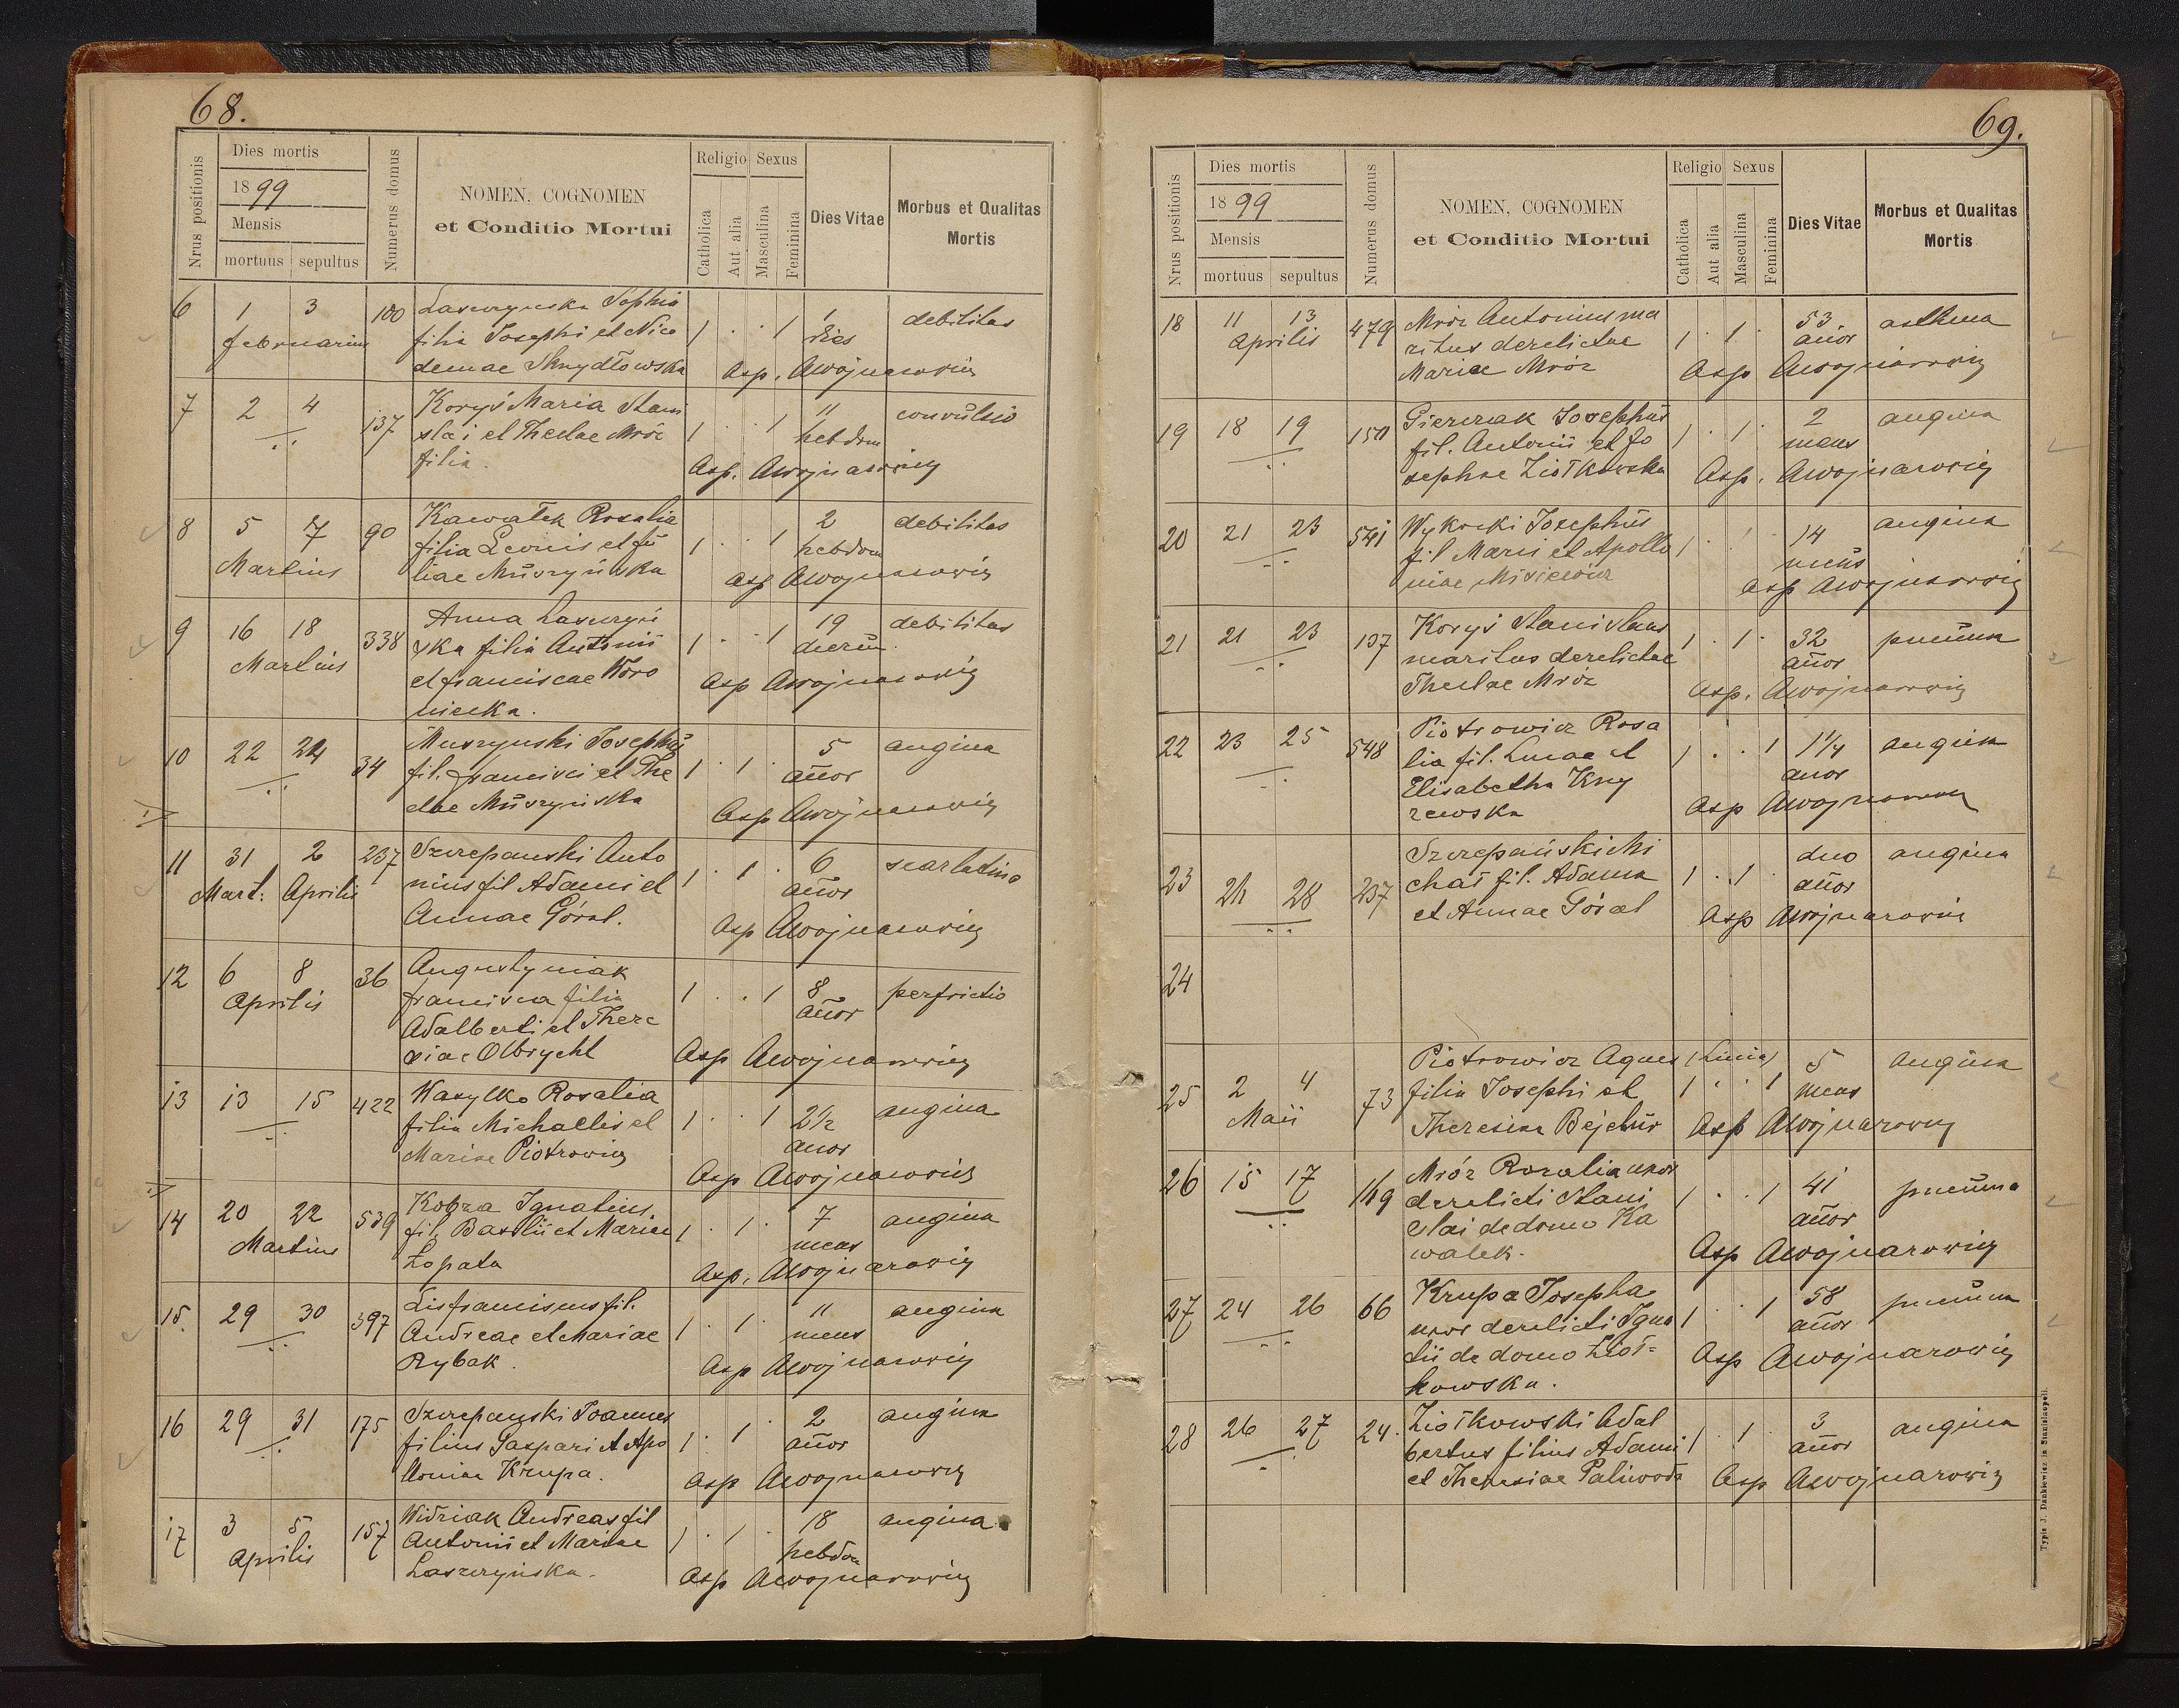 68.
Nrus positionis
Dies mortis
1899
Mensis
mortuus sepultus
Numerus domus
NOMEN, COGNOMEN
et Conditio Mortui
Religio Sexus
Catholica
Aut alia
Masculina
Feminina
Dies Vitae
Morbus et Qualitas
Mortis
6 1 3 100 Laszczynska Sophia 1 . . 1 1 debilitas
februarius filia Josephi et Nico dies
demae Skrydłowska Asp. AWojnarowicz
7 2 4 137 Koryś Maria Stani 1 . . 1 11 convulsio
slai et Theclae Mróz hebdom
filia. Asp. AWojnarowicz
8 5 7 90 Kawałek Rosalia 1 . . 1 2 debilitas
Martius filia Leonis et Ju hebdom
liae Muszyńska Asp AWojnarowicz
9 16 18 338 Anna Laszczyń 1 . . 1 19 debilitas
Martius ska filia Antonii dierum
et franciscae Woro Asp AWojnarowicz
niecka.
10 22 24 34 Muszynski Josephus 1 . 1 . 5 angina
fil. francisci et The añor
clae Muszyńska Asp AWojnarowicz
11 31 2 237 Szczepanski Anto 1 . 1 . 6 scarlatina
Mart: Aprilis nius fil Adami et añor
Annae Góral. Asp AWojnarowicz
12 6 8 36 Augustyniak 1 . . 1 8 perfrictio
Aprilis francisca filia añor
Adalberti et There
siae Olbrycht Asp AWojnarowicz
13 13 15 422 Wasylko Rosalia 1 . 1 2½ angina
filia Michaelis et anor
Mariae Piotrowicz Asp AWojnarowicz
14 20 22 539 Kobza Ignatius. 1 . 1 . 7 angina
Martius fil. Basilii et Mariae mens
Łopata Asp. AWojnarowicz
15. 29 30 397 Lis franciscus fil. 1 . 1 . 11 angina
Andreae et Mariae mens
Rybak. Asp AWojnarowicz
16 29 31 175 Szczepanski Joannes 1 . 1 . 2 angina
filius Gaspari et Apo añor
lloniae Krupa. Asp AWojnarowicz
17 3 5 157 Widziak Andreas fil 1 . 1 . 18 angina
Aprilis Antonii et Mariae hebdom
Laszczyńska. Asp AWojnarowicz
69.
Nrus positionis
Dies mortis
1899
Mensis
mortuus sepultus
Numerus domus
NOMEN, COGNOMEN
et Conditio Mortui
Religio Sexus
Catholica
Aut alia
Masculina
Feminina
Dies Vitae
Morbus et Qualitas
Mortis
18 11 13 479 Mróz Antonius ma 1 . 1 . 53 asthma
Aprilis ritus derelictae añor
Mariae Mróz Asp AWojnarowicz
19 18 19 Pierzak Josephus 1 . 1 . 2 angina
fil. Antonii et Jo mens
sephae Ziołkowska Asp. AWojnarowicz
20 21 23 541 Wykocki Josephus 1 . 1 . 14 angina
fil Marci et Apollo mens
niae Misiewicz Asp AWojnarowicz
21 21 23 137 Koryś Stanislaus 1 . 1 . 32 pneuma
maritus derelictae añor
Theclae Mróz Asp. AWojnarowicz
22 23 25 548 Piotrowicz Rosa 1 . . 1 1¼ angina
lia fil. Lucae et anor
Elisabetha Krzy
zewska Asp AWojnarowicz
23 28 237 Szczepański Mi 1 . 1 . duo angina
chał fil. Adama añor
et Annae Góral Asp AWojnarowicz
24
25 2 4 73 Piotrowicz Agnes 1 . . 1 5 angina
Maii filia Josephi et mens
Theresiae Asp AWojnarowicz
26 15 17 149 Mróz Rozalia uxor 1 . . 1 41 pneuma
derelicti Stani añor
slai de domo Ka
walek. Asp AWojnarowicz
27 24 26 66 Krupa Josepha 1 . . 1 58 pneuma
uxor derelicti Igna añor
tii de domo Zioł=
kowska. Asp AWojnarowicz
28 26 27 24. Ziołkowski Adal 1 . 1 . 3 angina
bertus filius Adami añor
et Theresiae Paliwoda Asp AWojnarowicz
Typis J. Dankiewicz in Stanislaopoli.